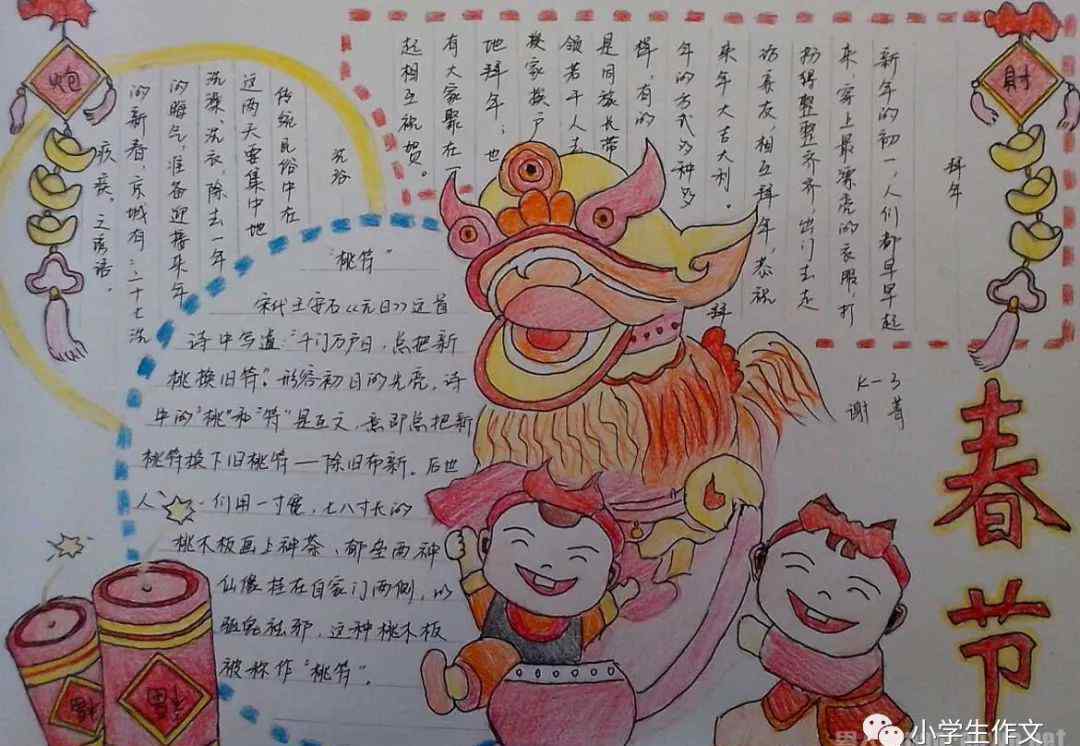 拜年
新年的初一,人们都早早起
来,穿上最漂亮的衣服,打
扮得整整齐齐,出门去走
访亲友,相互拜年,恭祝
来年大吉大利。拜
年的方式多种多
样,有的
是同族长带
领若干人去
挨家挨户
地拜年;也
有大家聚在一
起相互祝贺。
洗浴
传统民俗中在
这两天要集中地
洗澡、洗衣,除去一年
的晦气,准备迎接来年
的新春,京城有:二十七洗
疚疾。之谚语。
"桃符"
宋代王安石《元日》这首
诗中写道:"千门万户日,总把新
桃换旧符"。形容初日的光亮。诗
中的"桃"和"符"是互文,意即总把新
桃符换下旧桃符—除旧布新。后世
人们用一寸宽,七八寸长的
桃木板画上神荼、郁垒两神
仙像挂在自家门两侧,以
驱鬼祛邪,这种桃木板
被称作"桃符"。
炮
财
福
福
K-3
谢菁
春节
小学生作文